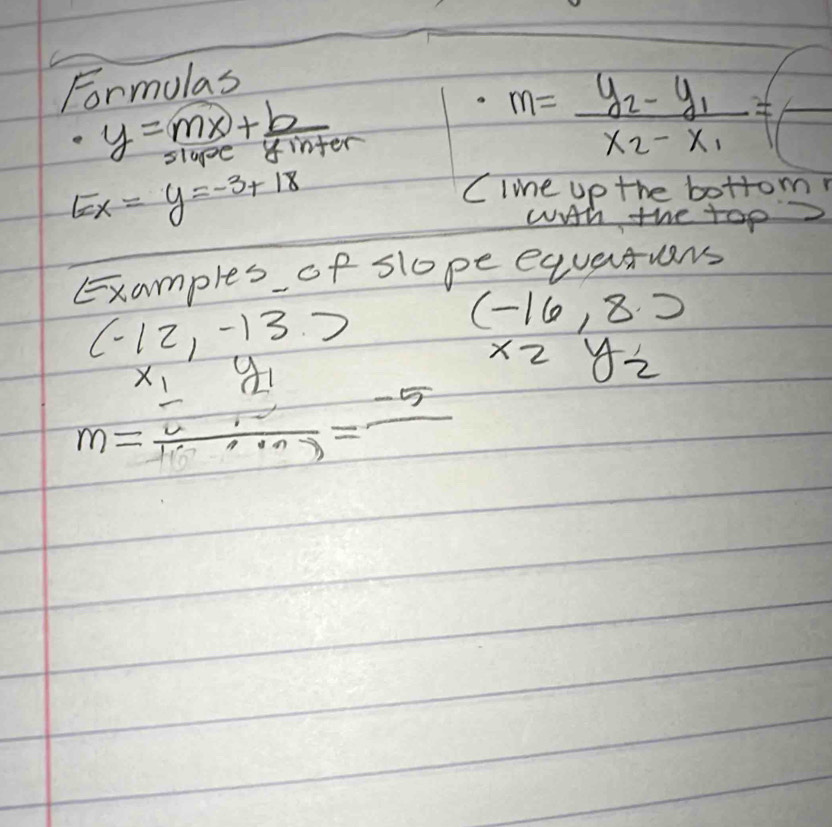 Formulas
• y = mx + b
slope y inter
Ex = y = -3 + 18
• m = y2 - y1 / x2 - x1 =
(line up the bottom
with the top)
Examples of slope equations
(-12, -13) (-16, 8)
x1 y1 x2 y2
m = = -5